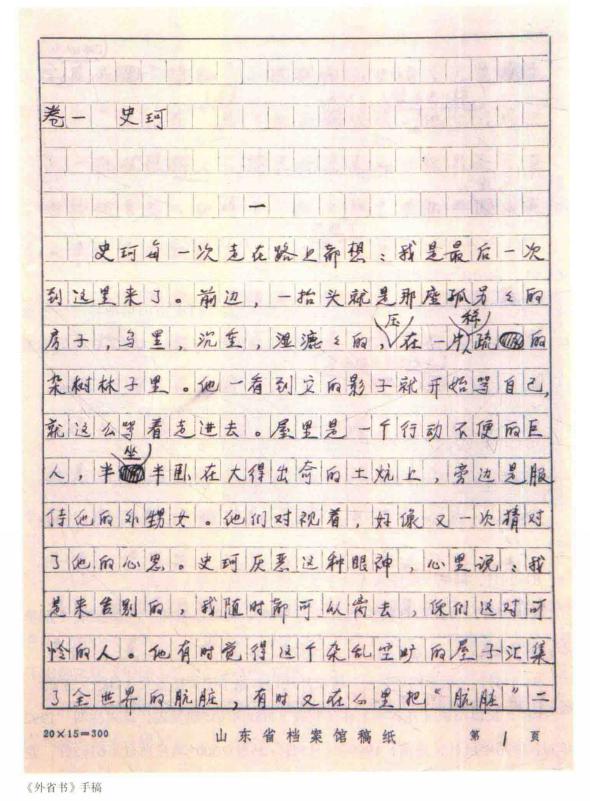 卷一 史珂
一
史珂每一次走在路上都想:我是最后一次
到这里来了。前边,一抬头就是那座孤另々的
房子,乌黑,沉重,湿漉々的,压在一片稀疏的
杂树林子里。他一看到它的影子就开始骂自己,
就这么骂着走进去。屋里是一个行动不便的巨
人,半坐半卧在大得出奇的土炕上,旁边是服
侍他的外甥女。他们对视着,好像又一次猜对
了他的心思。史珂厌恶这种眼神,心里说:我
是来告别的,我随时都可以离去,你们这对可
怜的人。他有时觉得这个杂乱空旷的屋子汇集
了全世界的肮脏,有时又在心里把“肮脏”二
20×15=300 山东省档案馆稿纸 第 1 页
《外省书》手稿